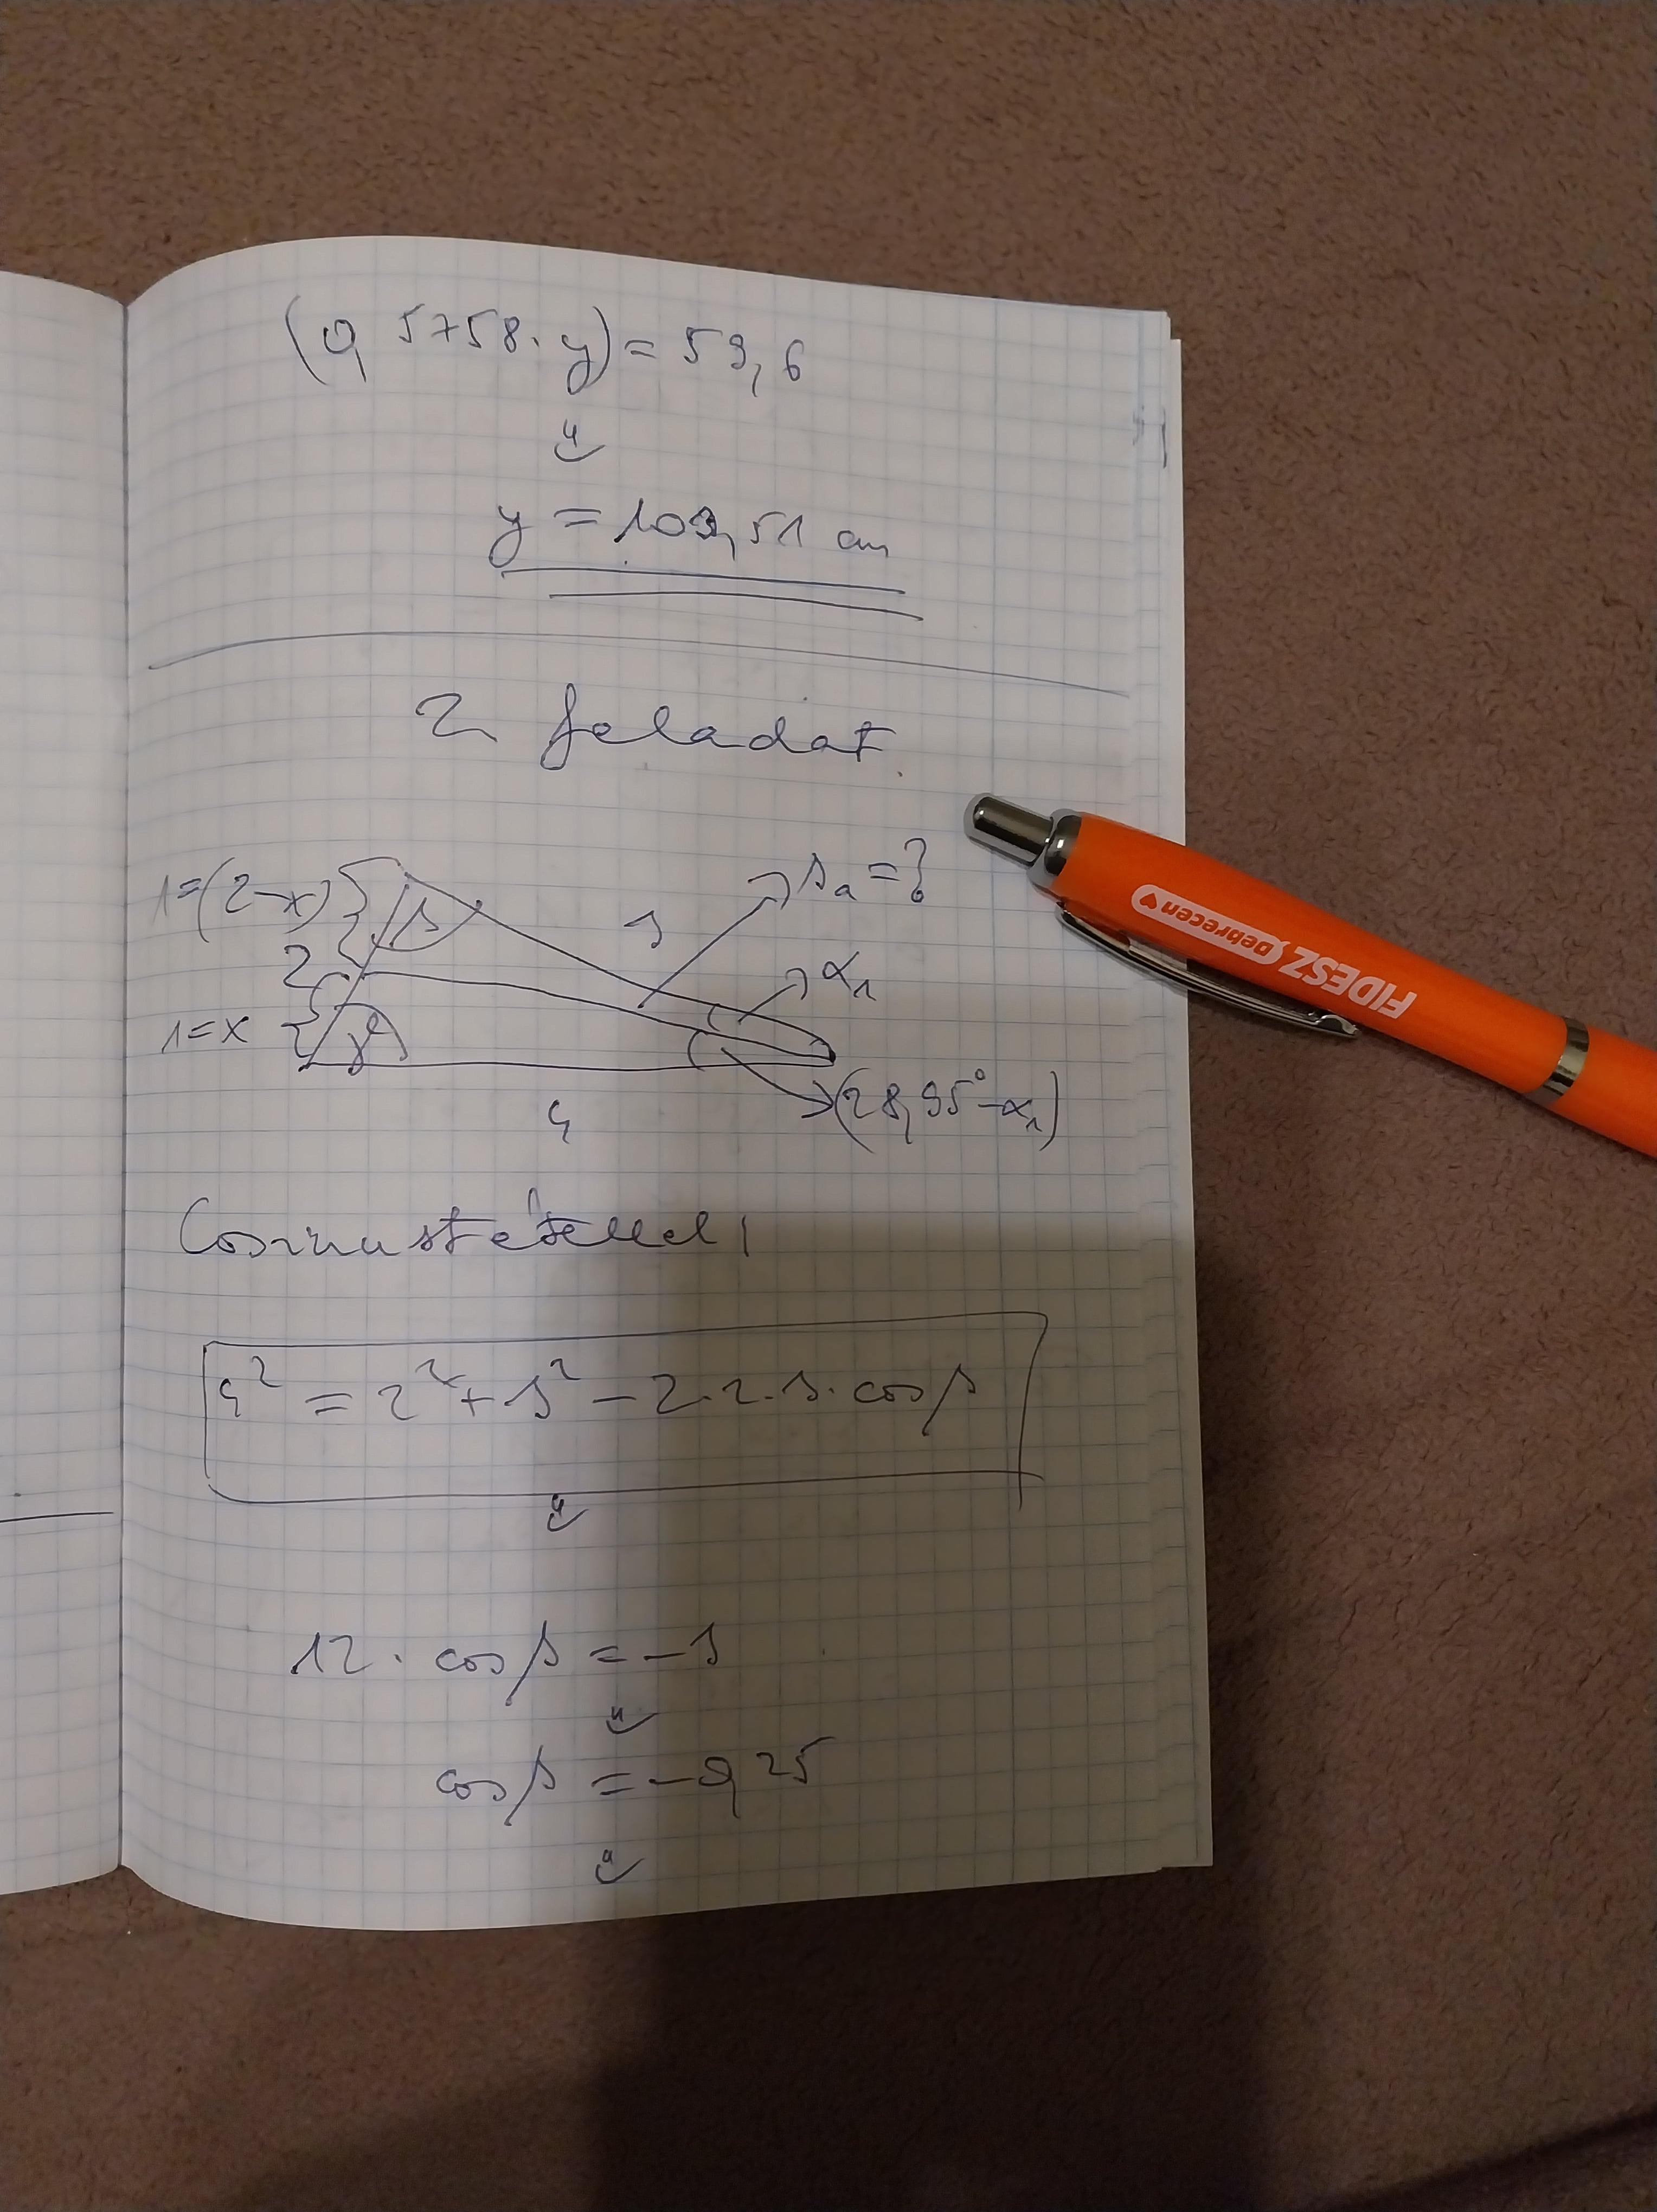 (0,5758·y) = 59,6
⇓
y = 103,51 cm
2 feladat.
1=(2-x)
β
3
sₐ=?
2
α₁
1=x
γ
(28,95°-α₁)
4
Cosinustétellel
4² = 2² + 3² - 2·2·3·cosβ
⇓
12·cosβ = -3
⇓
cosβ = -0,25
⇓
FIDESZ Debrecen ♥